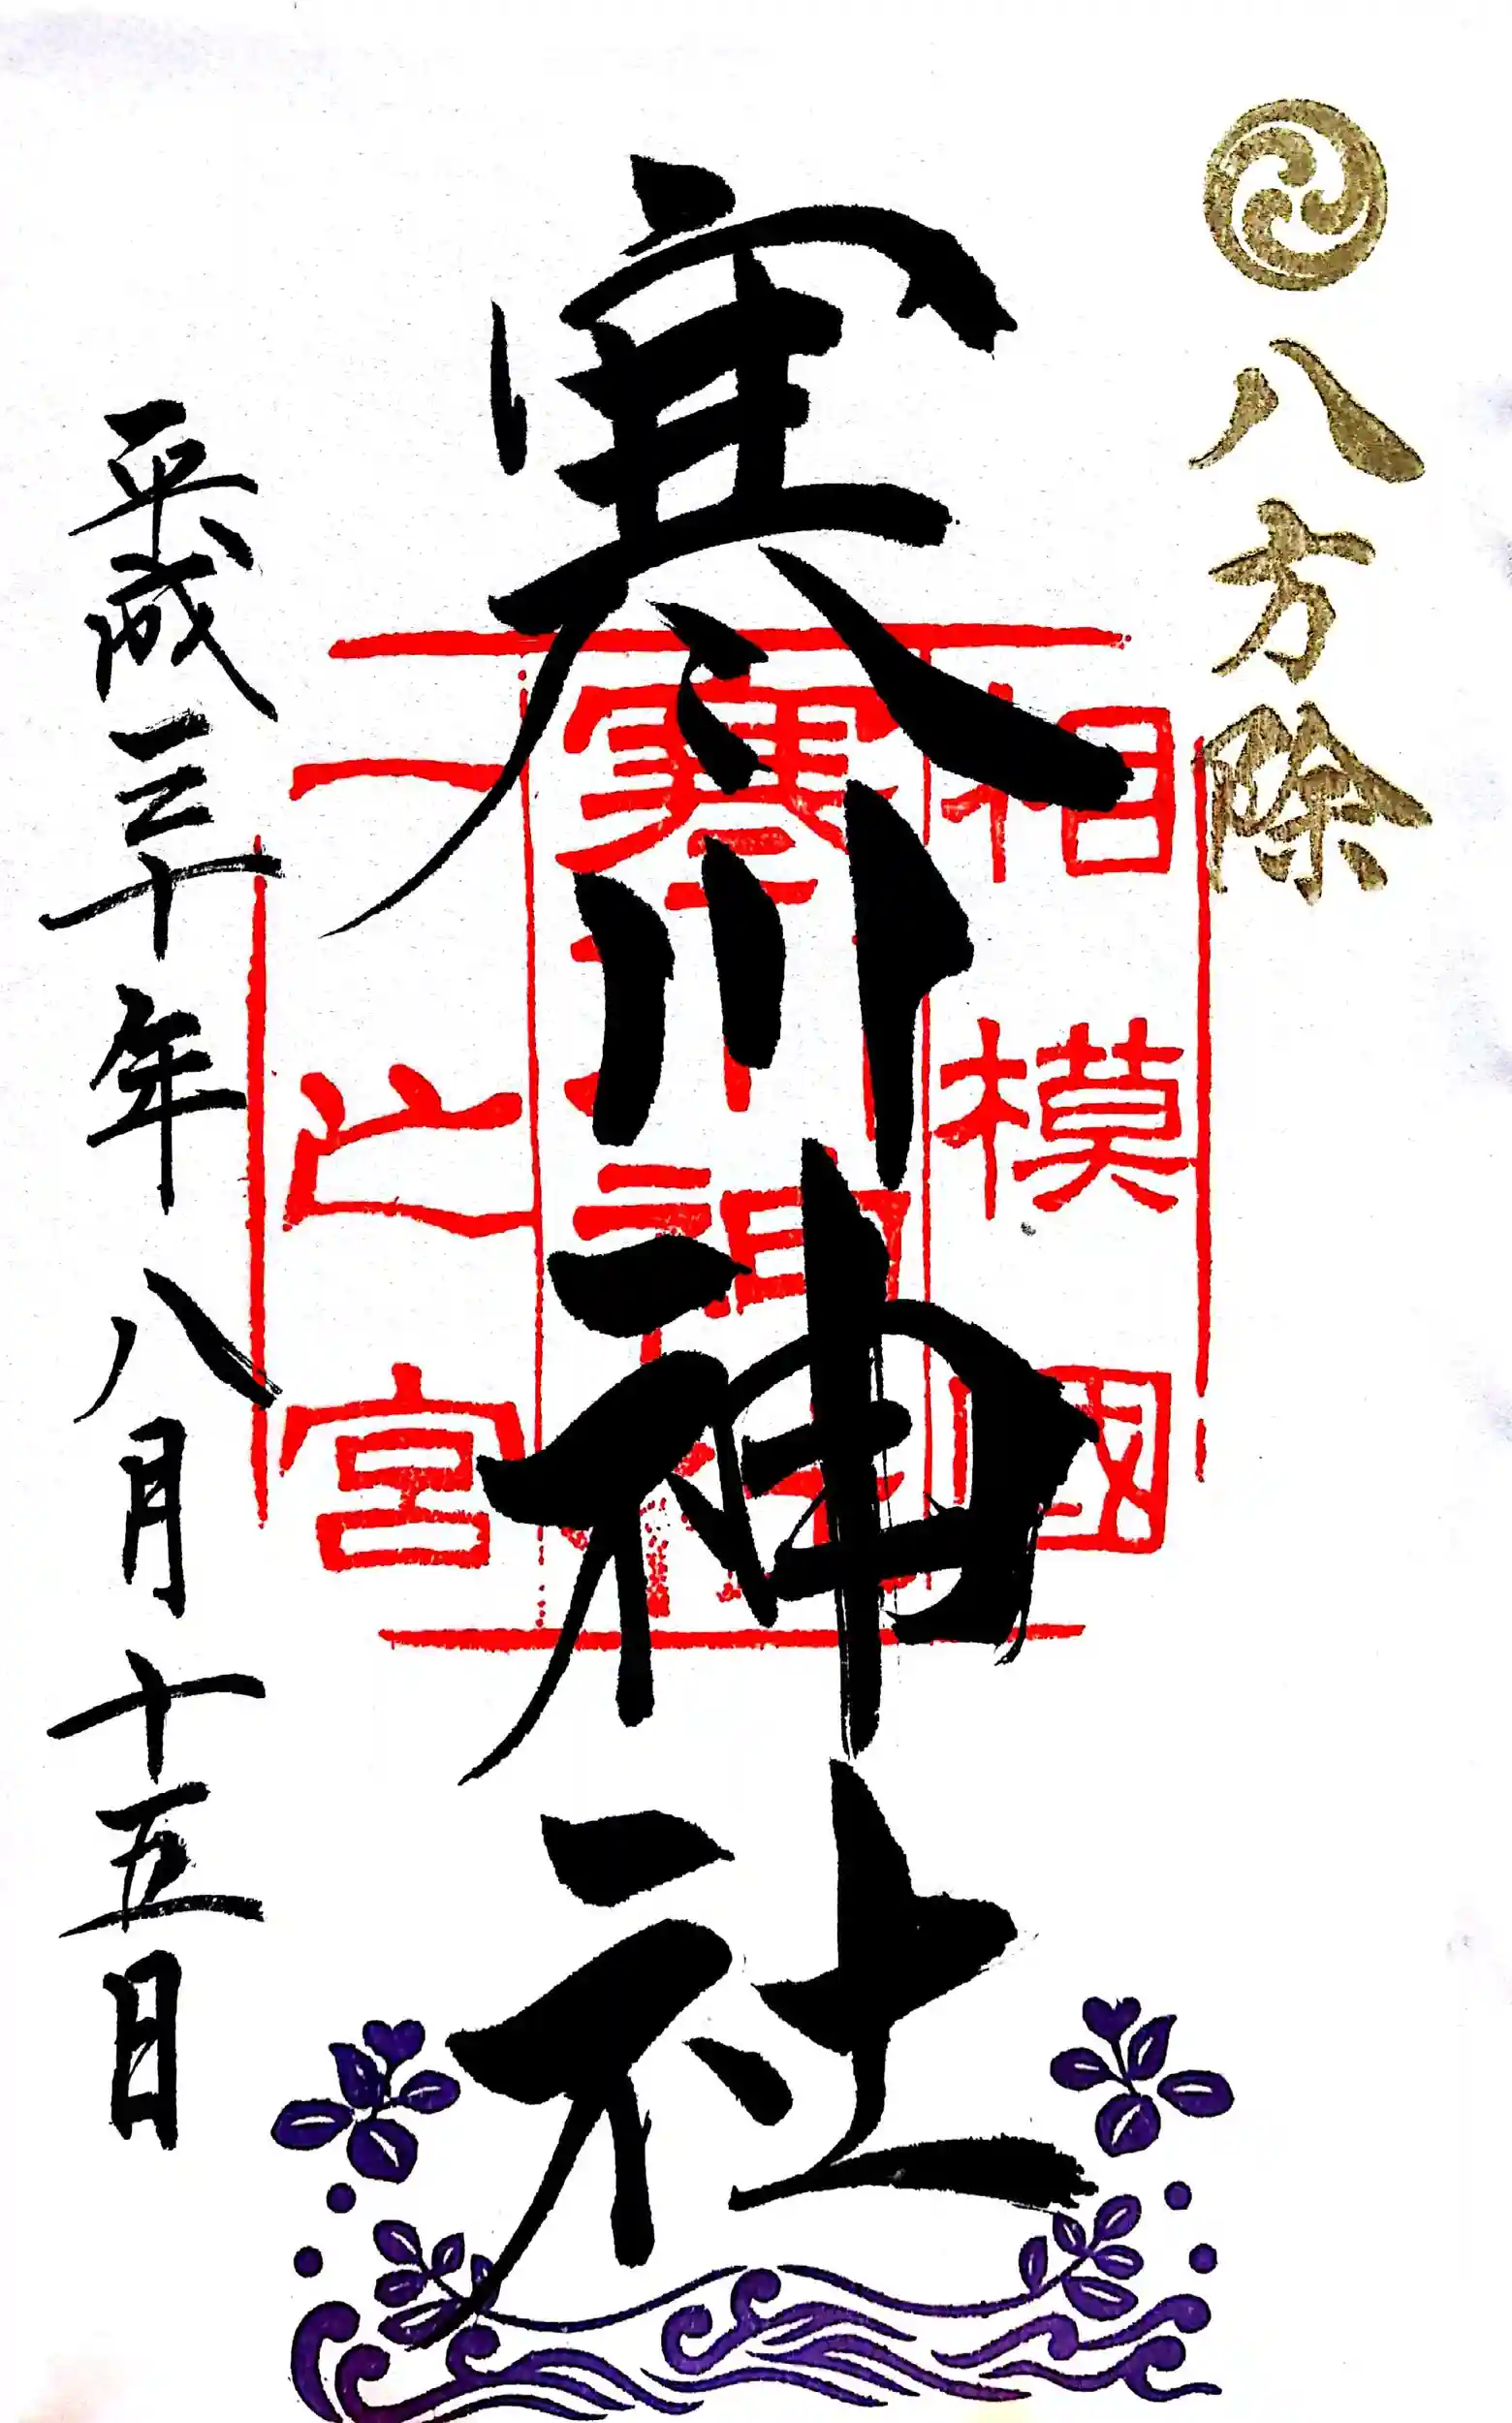 八方除
寒川神社
相模國
寒川神社
一之宮
平成三十年
八月十五日